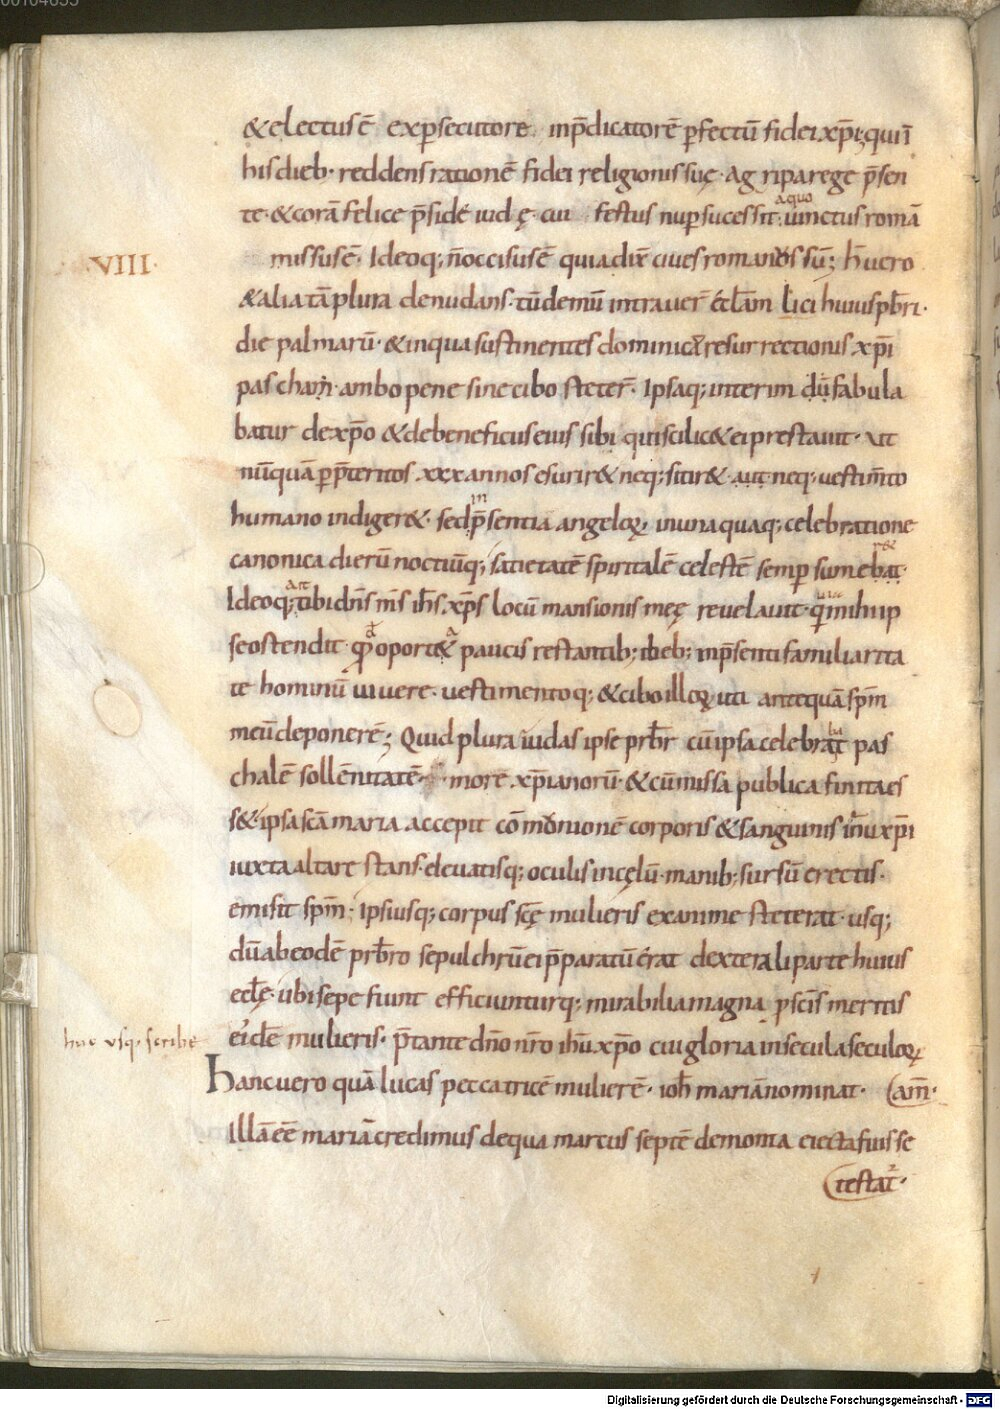 00104055
&electus ē exp̱secutore inp̄dicatorē ꝑfectū fidei xp̄i; qui ī
his dieb· reddens rationē fidei religionis suę· Agriparege p̄sen
te·&corā felice p̄side iudę· cui festus nuꝑ sucessit· a quo uinctus romā
VIII· missus ē· Ideoq; n̄ occisus ē quia dix̄ ciues romanus sū; h̄ uero
&alia tā plura denudans· tū demū intrauer̄ ęcl̄am l̄ici huius pb̄ri·
die palmarū· &inqua sustinentes dominicę resurrectionis xp̄i
pascham̄· ambo pene sine cibo steter̄· Ipsaq; interim dū fabula
batur dexp̄o &debeneficiis eius sibi quiscilic&ei prestauit· ut
nūquā ꝑ p̄teritos xxx annos esurir& neq; sitir& aut neq; uestim̄to
humano indiger&· sed in p̄sentia angeloꝝ inunaquaq; celebratione
canonica dierū noctiūq; satietatē spiritalē celestē semꝑ sumebat·
Ideoq; ait tibi dn̄s m̄s ih̄s xp̄s locū mansionis meę reuelauit· q̄ mihi ip
se ostendit· qđ oport& paucis restantib; dieb; inp̄senti familiarita
te hominū uiuere· uestimentoq; &cibo illoꝝ uti antequā spm̄
meū deponerē; Quid plura iudas ipse prb̄r cū ipsa celebrat pas
chalē sollēnitatē· more xp̄ianorū· &cū missa publica finita es
s& ipsa sc̄a maria accepit cōmunionē corporis &sanguinis ih̄u xp̄i
iuxta altare stans· eleuatisq; oculis incęlū· manib; sursū erectis·
emisit spm̄; ipsiusq; corpus sc̄ę mulieris examine steterat· usq;
dū ab eodē prb̄ro sepulchrū ei p̄paratū erat dexterali parte huius
ecl̄ę· ubi sepe fiunt efficiunturq; mirabilia magna p sc̄is meritis
huc usq; scribe eidē mulieris· p̄stante dn̄o nr̄o ih̄u xp̄o cui gloria in secula seculoꝝ
Hanc uero quā lucas peccatricē mulierē· ioh̄ mariā nominat· (am̄·
Illā eē mariā credimus de qua marcus septē demonia eiecta fuisse
(testat̄·
Digitalisierung gefördert durch die Deutsche Forschungsgemeinschaft - DFG